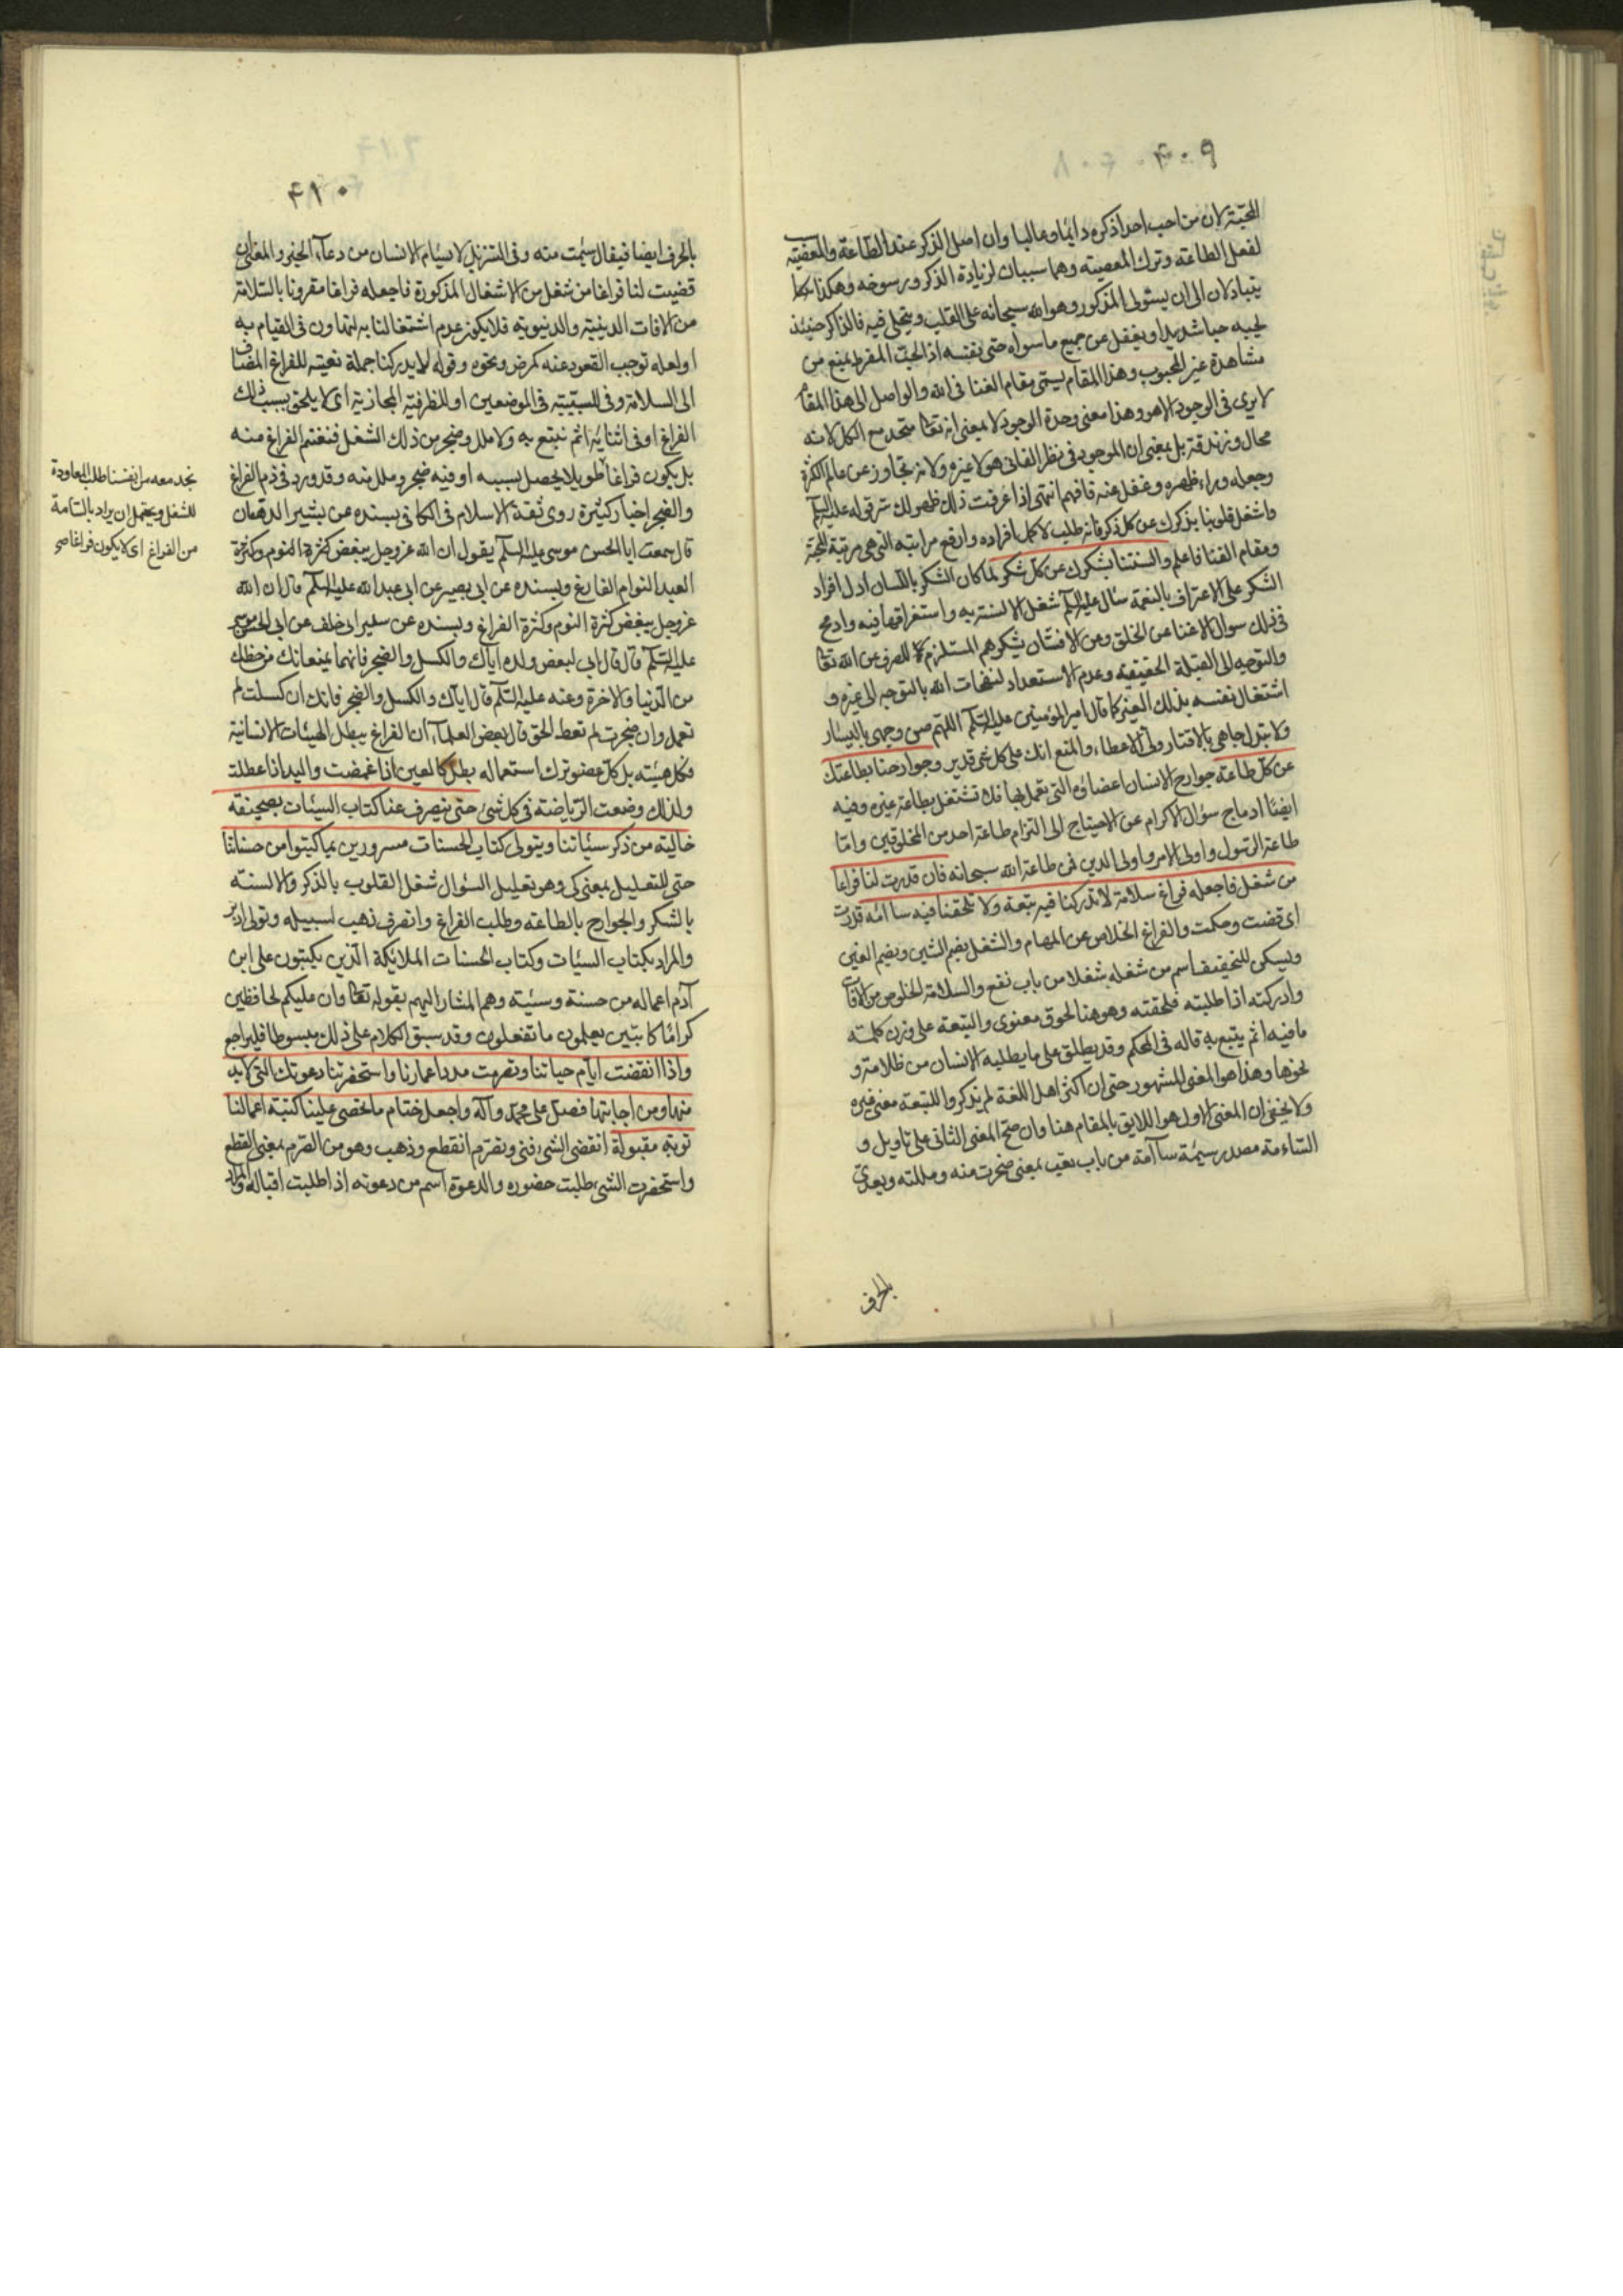 ۴۰۹
المحبّة لان من احب احدا ذكره دائما وغالبا وان اصل الذكر عند الطاعة والمعصية سبب
لفعل الطاعة وترك المعصية وهما سببان لزيادة الذكر ورسوخه وهكذا
يتبادلان الى ان يستولى المذكور وهو الله سبحانه على القلب ويتجلى فيه فالذاكر حينئذ
يحبه حبا شديدا ويغفل عن جميع ما سواه حتى نفسه اذ الحبّ المفرط يمنع من
مشاهدة غير المحبوب وهذا المقام يسمّى مقام الفنا فى الله والواصل الى هذا المقام
لا يرى فى الوجود الا هو وهذا معنى وحدة الوجود لا بمعنى انه تعالى متحد مع الكل لانه
محال وزندقة بل بمعنى ان الموجود فى نظر الفانى هو لا غيره ولانه تجاوز عن عالم الكثرة
وجعله وراء ظهره وغفل عنه فافهم انتهى اذا عرفت ذلك ظهر لك سر قوله عليه السلم
واشغل قلوبنا بذكرك عن كل ذكر فانه طلب لاكمل افراده وارفع مراتبه التى هى مرتبة المحبّة
ومقام الفنا فاعلم والسنتنا بشكرك عن كلّ شكر لما كان الشكر باللسان ادل افراد
الشكر على الاعتراف بالنعمة سئال عليه السلم شغل الالسنة به واستغراقها فيه وادمج
فى ذلك سوال الاغنا عن الخلق وعن الافتتان بشكرهم المستلزم للصرف عن الله تعالى
والتوجه الى القبلة الحقيقية وعدم الاستعداد لنفحات الله بالتوجه الى غيره و
اشتغال نفسه بذلك الغير كما قال امير المؤمنين عليه السلم اللهّم صن وجهى باليسار
ولا تبتذل جاهى بالاقتار ولىّ الاعطاء والمنع انك على كل شئ قدير وجوارحنا بطاعتك
عن كلّ طاعة جوارح الانسان اعضاؤه التى يعمل بها فلا تشتغل بطاعة غيره وفيه
ايضًا ادماج سؤال الاكرام عن الاحتياج الى التزام طاعة احد من المخلوقين وامّا
طاعة الرّسول واولى الامر واولى الدين فمن طاعة الله سبحانه فان قدرت لنا فراغا
من شغل فاجعله فراغ سلامة لا تدركنا فيه تبعة ولا تلحقنا فيه سأامة قدرت
اى قضيت وحكمت والفراغ الخلاص عن المهام والشغل بضم الشين وبضم الغين
ويسكن للتخفيف اسم من شغله شغلا من باب نفع والسلامة الخلوص من الافات
وادركته اذا طلبته فلحقته وهو هنا لحوق معنوى والتبعة على وزن كلمة
ما فيه اثم يتبع به قاله فى المحكم وقد يطلق على ما يطلبه الانسان من ظلامة و
نحوها وهذا هو المعنى المشهور حتى ان اكثر اهل اللغة لم يذكروا للتبعة معنى غيره
ولا يخفى ان المعنى الاول هو اللايق بالمقام هنا وان صحّ المعنى الثانى على تاويل و
السّاءمة مصدر سيمة سأآمة من باب تعب بمعنى ضجرت منه ومللته ويعدّى
بالحرف
۴۱۰
بالحرف ايضا فيقال سئمت منه وفى التنزيل لا يسئم الانسان من دعاء الخير والمعنى ان
قضيت لنا فراغا من شغل من الاشغال المذكورة فاجعله فراغا مقرونا بالسّلامة
من الافات الدينيّة والدنيويّة فلا يكون عدم اشتغالنا به لتهاون فى القيام به
او لعلة توجب القعود عنه كمرض ونحوه وقوله لا يدركنا جملة نعتيه للفراغ المضاف
الى السلامة وفى للسببيّة فى الموضعين او للظرفيّة المجازية اى لا يلحق بسبب ذلك
الفراغ او فى اثنائه اثم نتبع به ولا ملل وضجر من ذلك الشغل فنغتنم الفراغ منه
بل يكون فراغا طويلا يحصل بسببه او فيه ضجر وملل منه وقد ورد فى ذم الفراغ
والضجر اخبار كثيرة روى ثقة الاسلام فى الكافى بسنده عن بشير الدهان
قال سمعت ابا الحسن موسى عليه السلم يقول ان الله عز وجل يبغض كثرة النوم وكثرة
العبد النوام الفارغ وبسنده عن ابى بصير عن ابى عبد الله عليه السلم قال ان الله
عز وجل يبغض كثرة النوم وكثرة الفراغ وبسنده عن سعد ابى خلف عن ابى الحسن موسى
عليه السّلم قال قال ابى لبعض ولده اياك والكسل والضجر فانهما يمنعانك من حظك
من الدّنيا والاخرة وعنه عليه السّلم قال ايّاك والكسل والضجر فانك ان كسلت لم
تعمل وان ضجرت لم تعط الحق قال بعض العلماء ان الفراغ يبطل الهيئات الانسانية
فكل هيئة بل كلّ عضو ترك استعماله بطل كالعين اذا غمضت واليد اذا عطلت
ولذلك وضعت الرّياضة فى كل شئ حتى ينصرف عنا كتاب السيئات بصحيفة
خالية من ذكر سيّئاتنا ويتولى كتاب الحسنات مسرورين بما كتبوا من حسناتنا
حتى للتعليل بمعنى كى وهو تعليل السؤال شغل القلوب بالذكر والالسنة
بالشكر والجوارح بالطاعة وطلب الفراغ وانصرف ذهب لسبيله وتولى ادبر
والمراد بكتاب السيئات وكتاب الحسنات الملائكة الّذين يكتبون على ابن
آدم اعماله من حسنة وسيّئة وهم المشار اليهم بقوله تعالى وان عليكم لحافظين
كرامًا كاتبين يعلمون ما تفعلون وقد سبق الكلام على ذلك مبسوطا فليراجع
واذا انقضت ايّام حياتنا وتصرمت مدد اعمارنا واستحضرتنا دعوتك التى لابد
منها ومن اجابتها فصلّ على محمّد وآله واجعل ختام ما تحصى علينا كتبة اعمالنا
توبة مقبولة انقضى الشئ فنى وتصّرم انقطع وذهب وهو من الصّرم بمعنى القطع
واستحضرت الشئ طلبت حضوره والدعوة اسم من دعوته اذا طلبت اقباله والمراد
نجد معه من انفسنا طلب المعاودة
للشغل ويحتمل ان يراد بالسّآمة
من الفراغ اى لا يكون فراغا